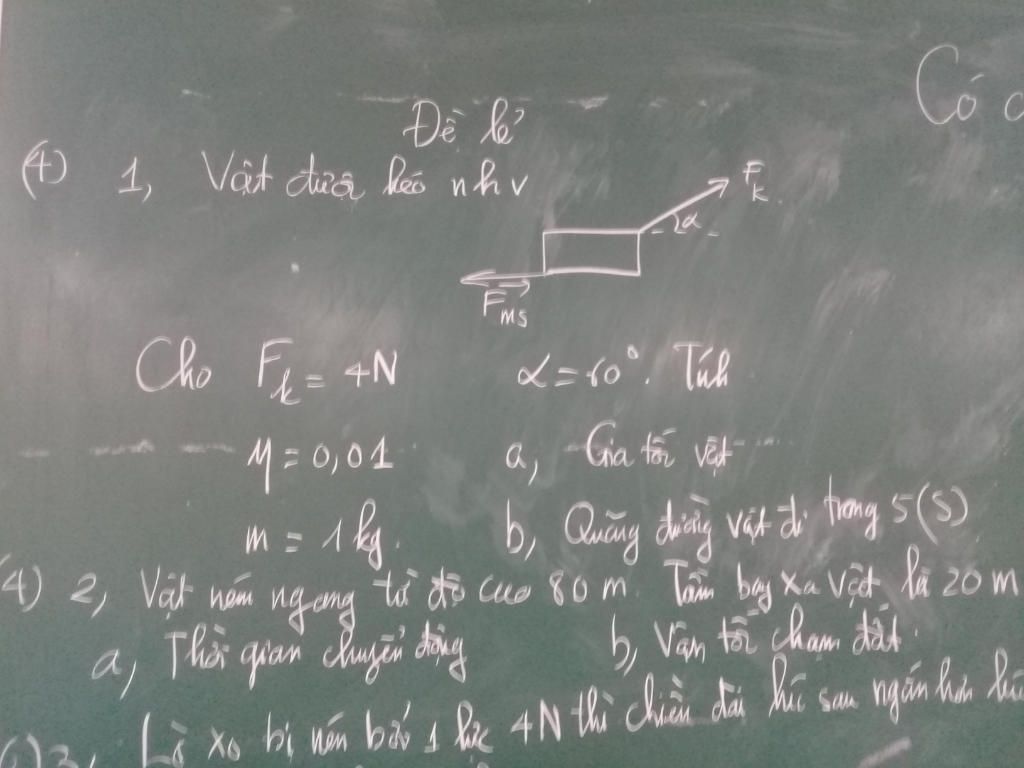 Có
Đề lẻ
(4) 1, Vật được kéo nhv
F k
α
F ms
Cho F k = 4N α = 60°. Tính
η = 0,01 a, Gia tốc vật
m = 1 kg. b, Quãng đường vật đi trong 5(s)
(4) 2, Vật ném ngang từ độ cao 80 m. Tầm bay xa vật là 20 m
a, Thời gian chuyển động b, Vận tốc chạm đất.
3, Lò xo bị nén bởi 1 lực 4N thì chiều dài lúc sau ngắn hơn lúc